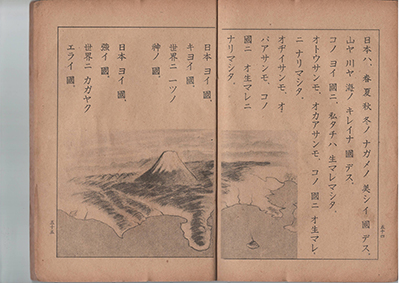 日本ハ、春夏秋冬ノ ナガメノ 美シイ 國 デス。
山ヤ 川ヤ 海ノ キレイナ 國 デス。
コノ ヨイ 國 ニ、私タチハ 生マレマシタ。
オトウサンモ、オカアサンモ、コノ 國ニ オ生マレ
ニ ナリマシタ。
オヂイサンモ、オ
バアサンモ、コノ
國ニ オ生マレニ
ナリマシタ。
日本 ヨイ 國、
キヨイ 國。
世界ニ 一ツノ
神ノ 國。
日本 ヨイ 國、
強イ 國。
世界ニ カガヤク
エライ 國。
五十四
五十五